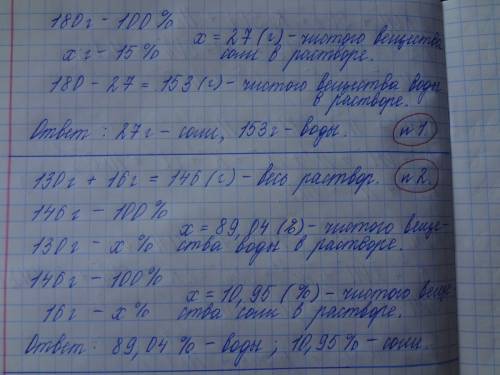 180 г – 100 %
х г – 15 % х = 27 (г) – чистого вещества
соли в растворе.
180 – 27 = 153 (г) – чистого вещества воды
в растворе.
Ответ : 27 г – соли, 153 г – воды. п 1.
130 г + 16 г = 146 (г) – весь раствор. п 2.
146 г – 100 %
130 г – х % х = 89,04 (%) – чистого веще-
ства воды в растворе.
146 г – 100 %
16 г – х % х = 10,95 (%) – чистого веще-
ства соли в растворе.
Ответ : 89,04 % – воды ; 10,95 % – соли.